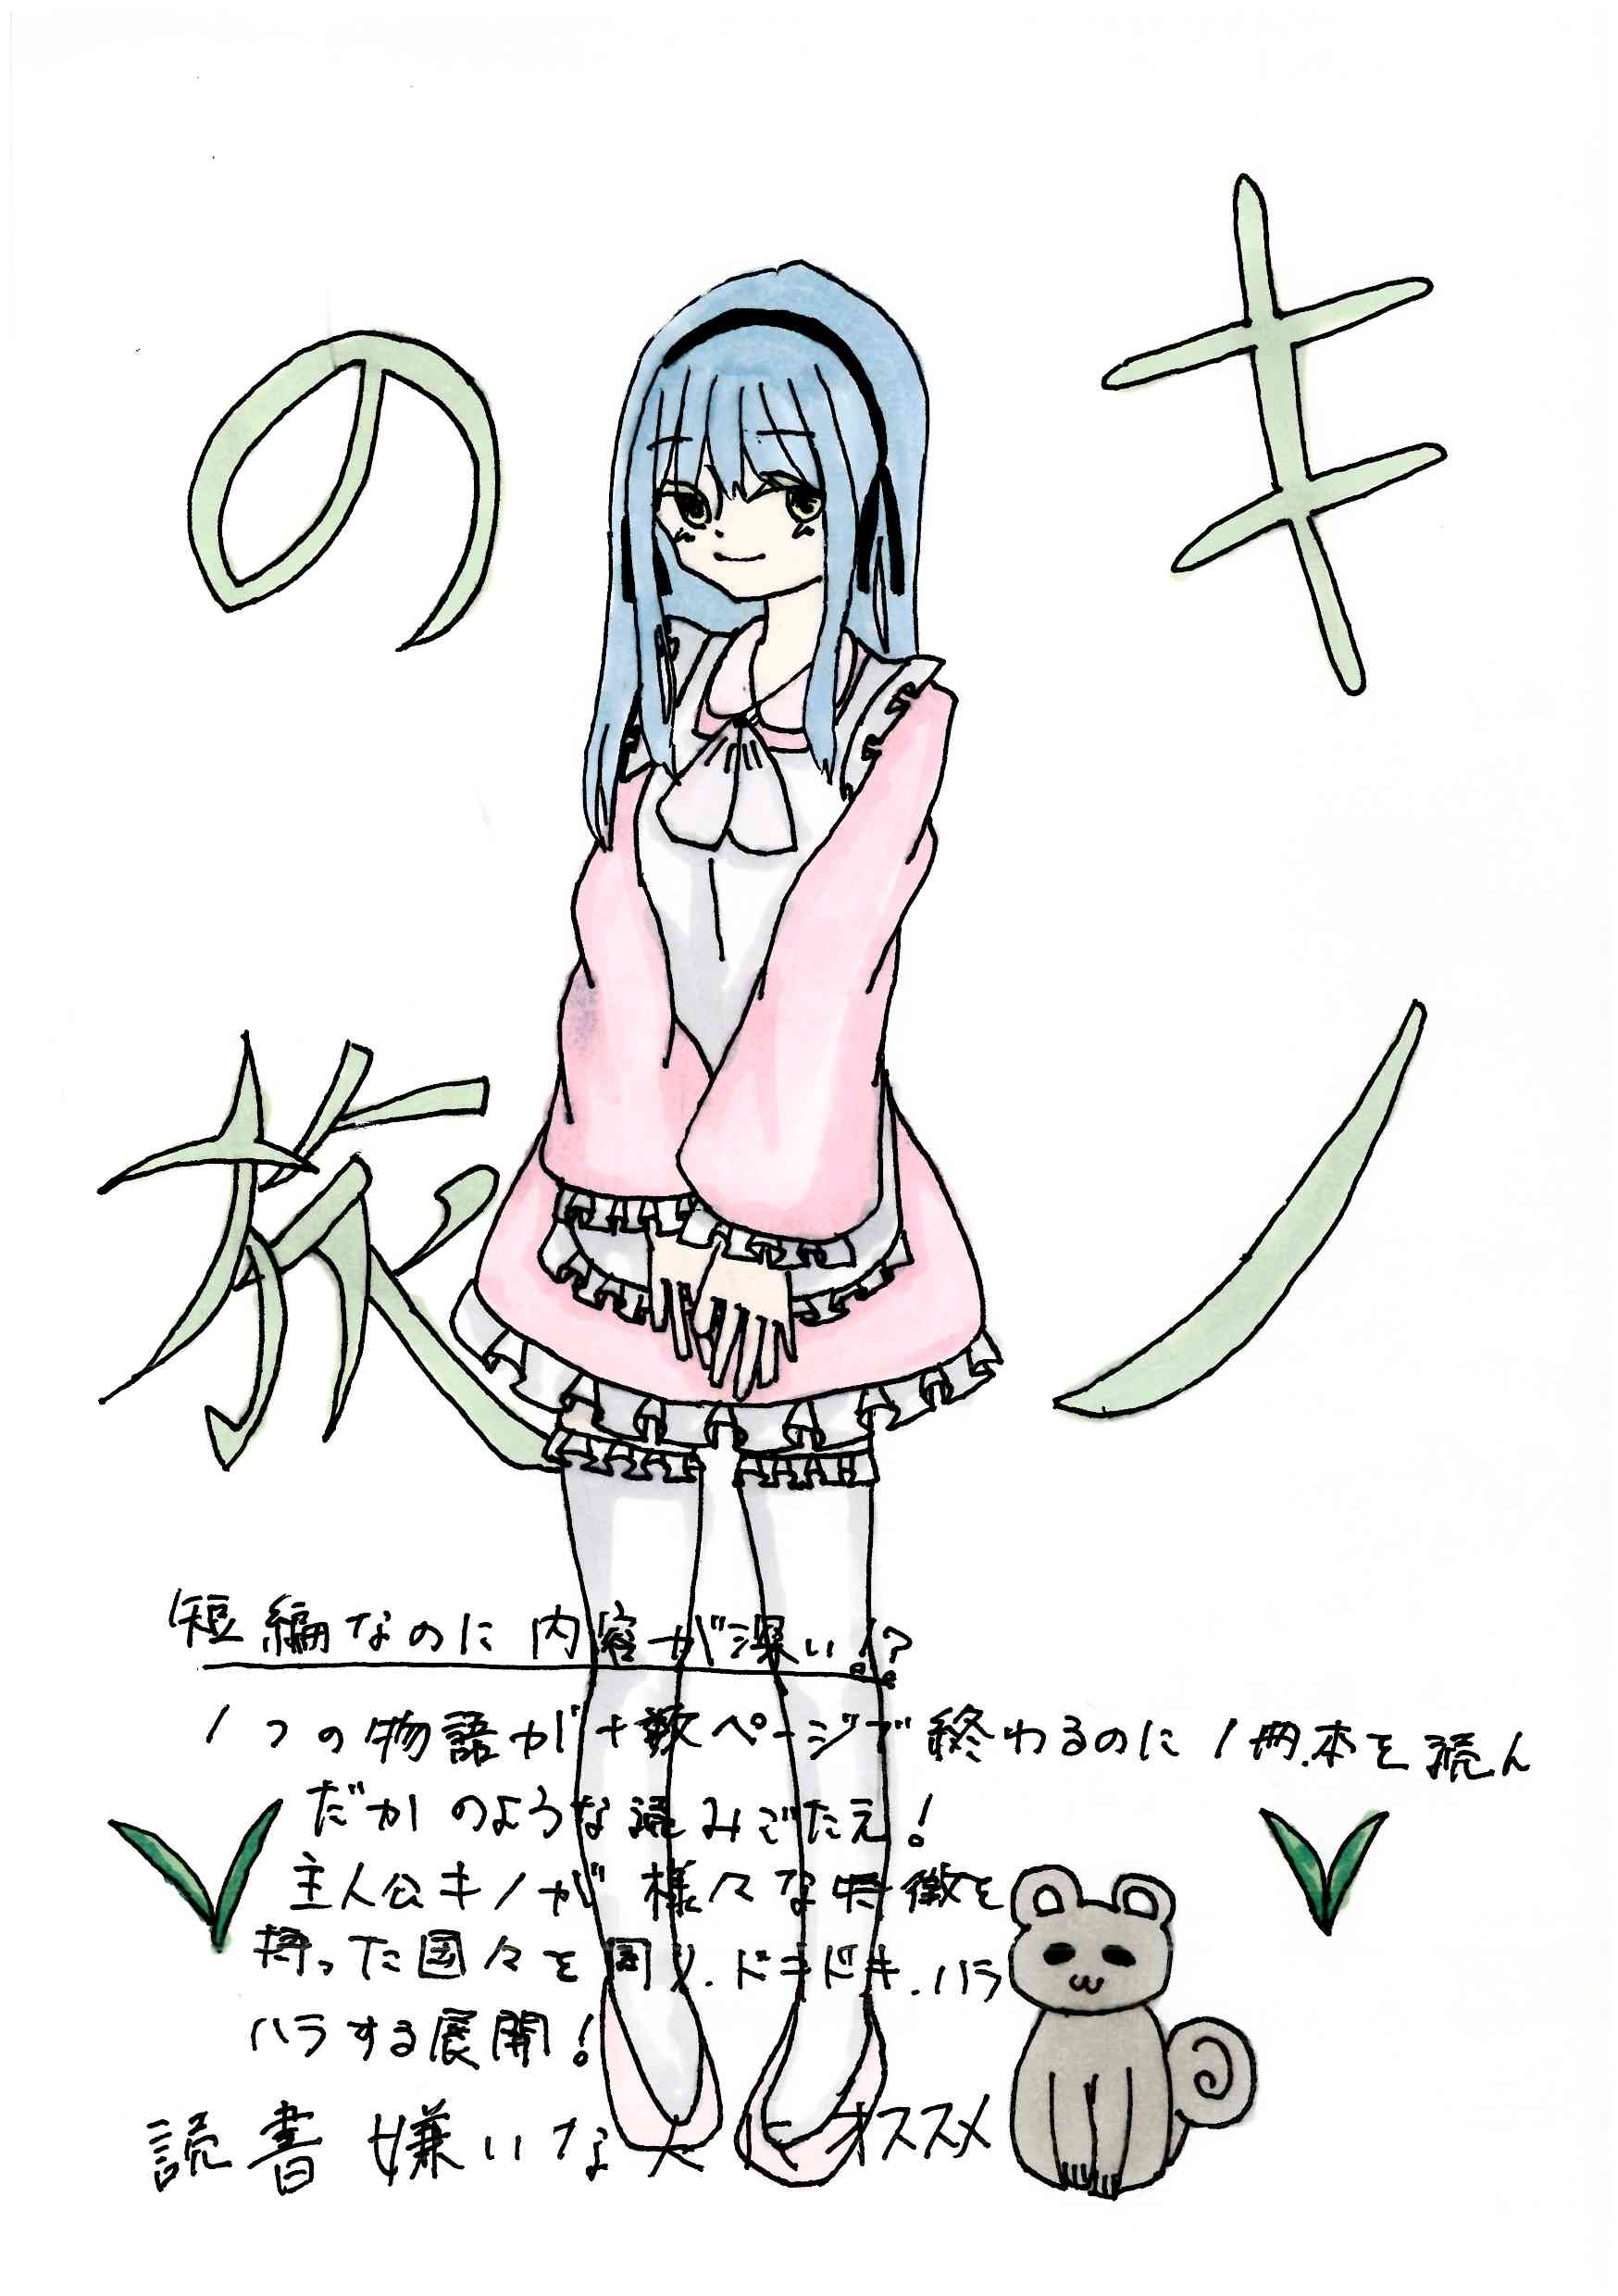 キノ
の旅
短編なのに内容が深い!?
1つの物語が十数ページで終わるのに1冊.本を読ん
だかのような読みごたえ!
主人公キノが様々な特徴を
持った国々を周り.ドキドキ.ハラ
ハラする展開!
読書嫌いな人にオススメ